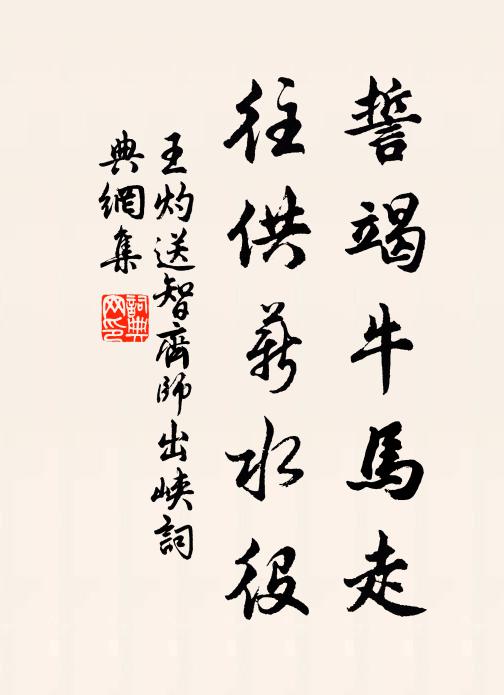 誓竭牛馬走
往供薪水役
王灼送智齊師出峽詞
典網集
詞典网印